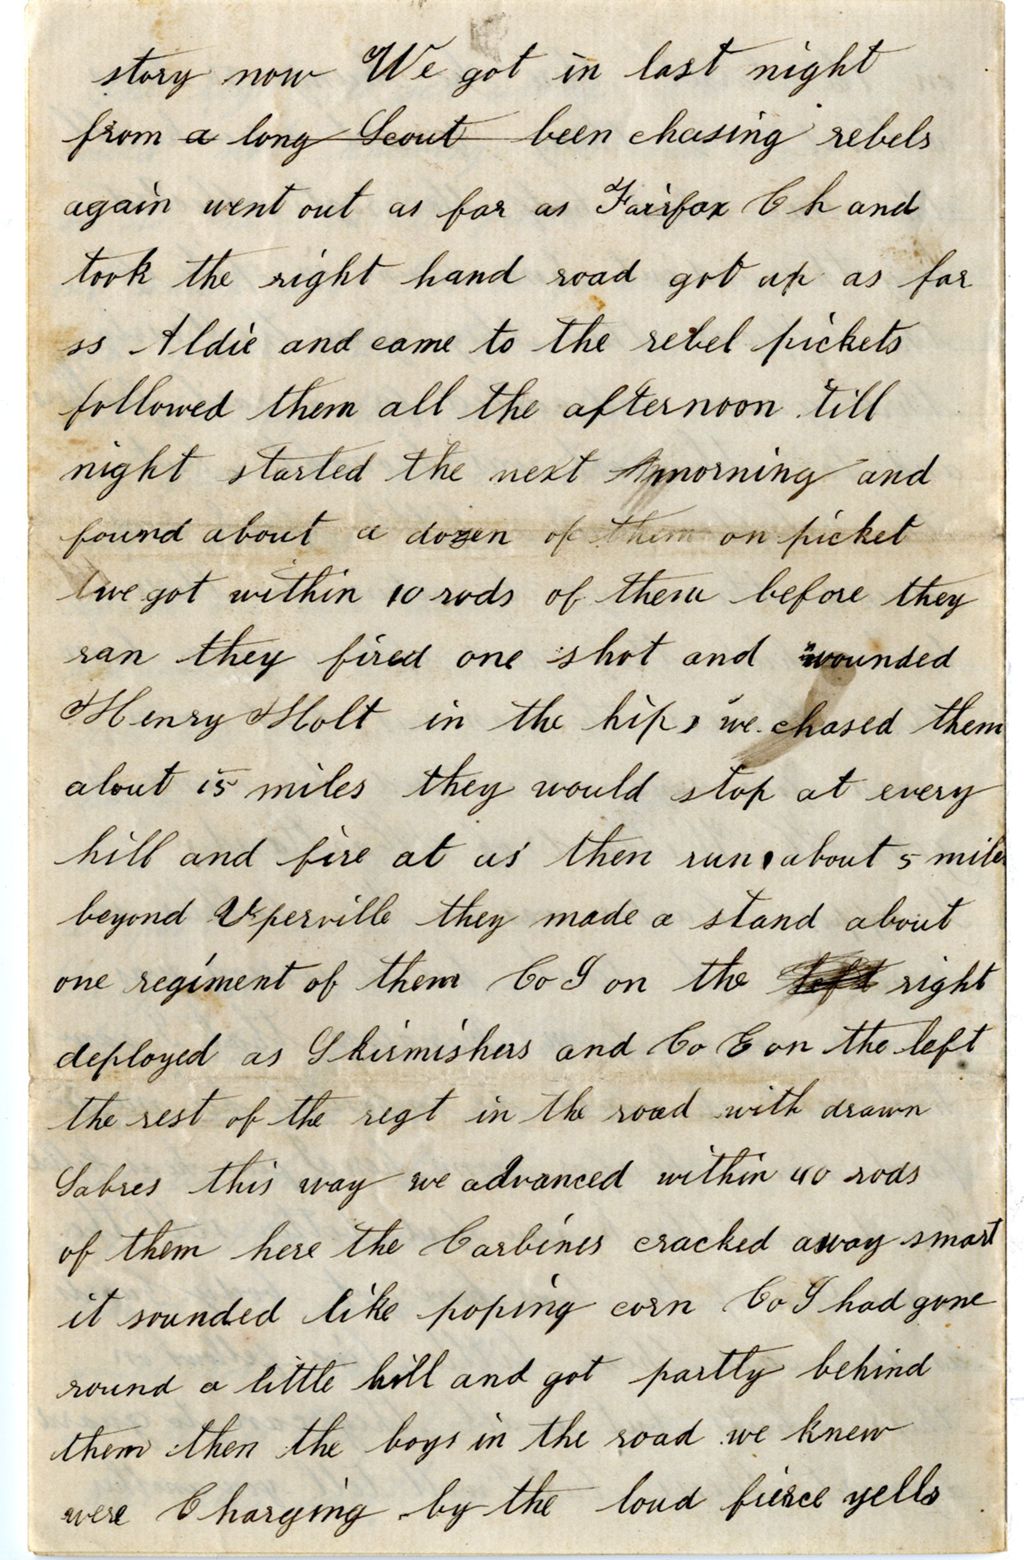 story now We got in last night
from a long Scout been chasing rebels
again went out as far as Fairfax C h and
took the right hand road got up as far
ss Aldie and came to the rebel pickets
followed them all the afternoon till
night started the next morning and
found about a dozen of them on picket
we got within 10 rods of them before they
ran they fired one shot and wounded
Henry Holt in the hip, we chased them
about 15 miles they would stop at every
hill and fire at us then run, about 5 miles
beyond Upperville they made a stand about
one regiment of them Co I on the left right
deployed as Skirmishers and Co E on the left
the rest of the regt in the road with drawn
Sabres this way we advanced within 40 rods
of them here the Carbines cracked away smart
it sounded like poping corn Co I had gone
round a little hill and got partly behind
them then the boys in the road we knew
were Charging by the loud fierce yells